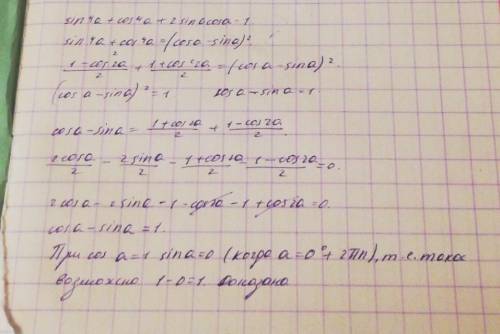 sin⁴a + cos⁴a + 2 sin a cos a = 1.
sin⁴a + cos⁴a = (cos a - sin a)²
(1 - cos 2a)/2 + (1 + cos 2a)/2 = (cos a - sin a)².
(cos a - sin a)² = 1 cos a - sin a = 1.
cos a - sin a = (1 + cos 2a)/2 + (1 - cos 2a)/2.
2 cos a/2 - 2 sin a/2 - (1 + cos 2a)/2 - (1 - cos 2a)/2 = 0.
2 cos a - 2 sin a - 1 - cos 2a - 1 + cos 2a = 0.
cos a - sin a = 1.
При cos a = 1 sin a = 0 (когда a = 0° + 2πn), т.е. такое
возможно 1 - 0 = 1. Доказано